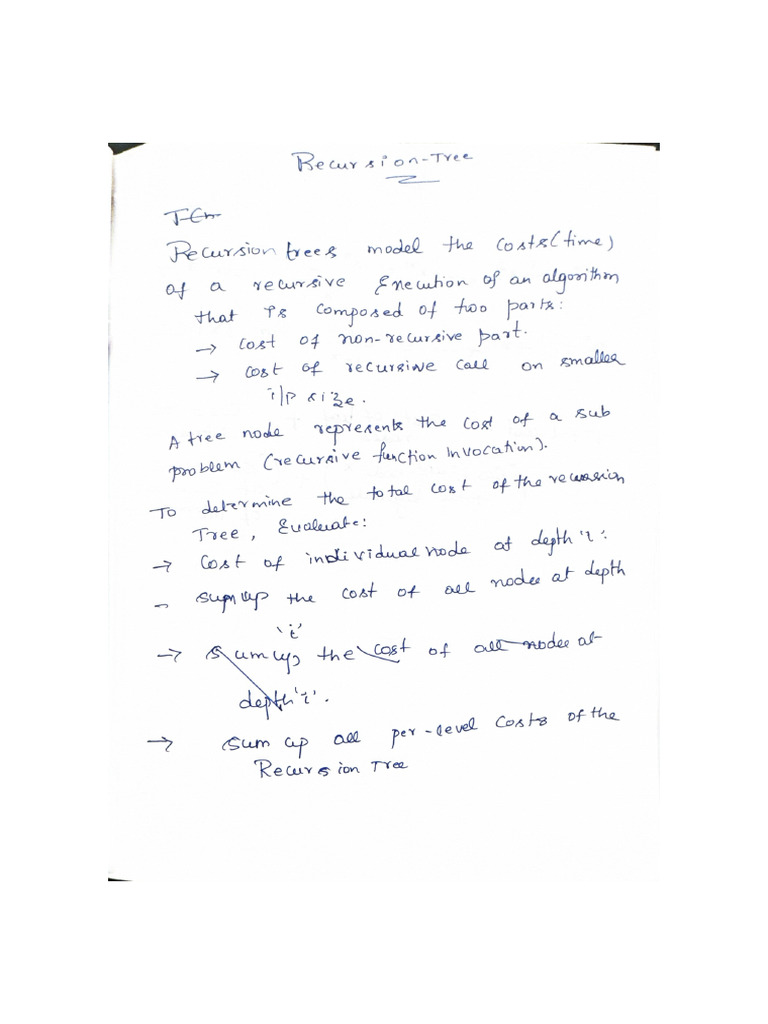 Recursion-Tree
T(n
Recursion trees model the costs (time)
of a recursive Execution of an algorithm
that is composed of two parts:
→ cost of non-recursive part.
→ cost of recursive call on smaller
i/p size.
A tree node represents the cost of a sub
problem (recursive function Invocation).
To determine the total cost of the recursion
Tree, Evaluate:
→ Cost of individual node at depth 'i'.
- sum up the cost of all nodes at depth
'i'
→ Sum up the cost of all nodes at
depth 'i'.
→ sum up all per-level costs of the
Recursion Tree